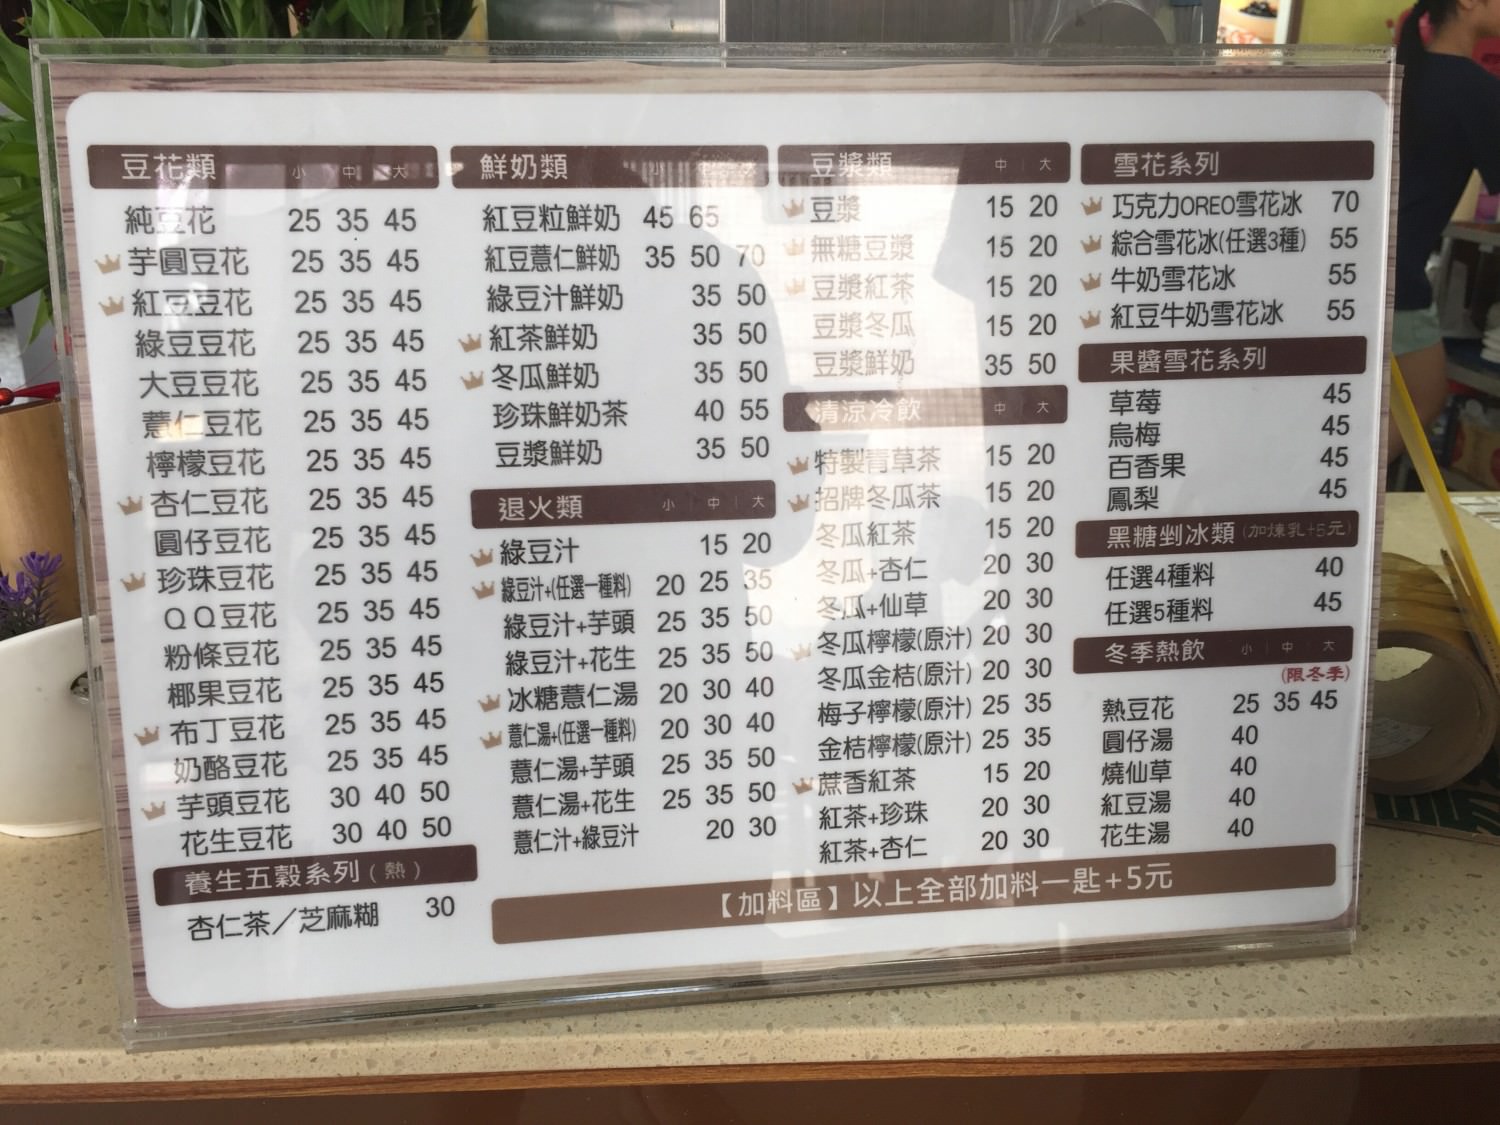 豆花類 小 中 大
純豆花 25 35 45
芋圓豆花 25 35 45
紅豆豆花 25 35 45
綠豆豆花 25 35 45
大豆豆花 25 35 45
薏仁豆花 25 35 45
檸檬豆花 25 35 45
杏仁豆花 25 35 45
圓仔豆花 25 35 45
珍珠豆花 25 35 45
ＱＱ豆花 25 35 45
粉條豆花 25 35 45
椰果豆花 25 35 45
布丁豆花 25 35 45
奶酪豆花 25 35 45
芋頭豆花 30 40 50
花生豆花 30 40 50
養生五穀系列(熱)
杏仁茶／芝麻糊 30
鮮奶類 小 中 大
紅豆粒鮮奶 45 65
紅豆薏仁鮮奶 35 50 70
綠豆汁鮮奶 35 50
紅茶鮮奶 35 50
冬瓜鮮奶 35 50
珍珠鮮奶茶 40 55
豆漿鮮奶 35 50
退火類 小 | 中 | 大
綠豆汁 15 20
綠豆汁+(任選一種料) 20 25 35
綠豆汁+芋頭 25 35 50
綠豆汁+花生 25 35 50
冰糖薏仁湯 20 30 40
薏仁湯+(任選一種料) 20 30 40
薏仁湯+芋頭 25 35 50
薏仁湯+花生 25 35 50
薏仁汁+綠豆汁 20 30
豆漿類 中 | 大
豆漿 15 20
無糖豆漿 15 20
豆漿紅茶 15 20
豆漿冬瓜 15 20
豆漿鮮奶 35 50
清涼冷飲 中 | 大
特製青草茶 15 20
招牌冬瓜茶 15 20
冬瓜紅茶 15 20
冬瓜+杏仁 20 30
冬瓜+仙草 20 30
冬瓜檸檬(原汁) 20 30
冬瓜金桔(原汁) 20 30
梅子檸檬(原汁) 25 35
金桔檸檬(原汁) 25 35
蔗香紅茶 15 20
紅茶+珍珠 20 30
紅茶+杏仁 20 30
雪花系列
巧克力OREO雪花冰 70
綜合雪花冰(任選3種) 55
牛奶雪花冰 55
紅豆牛奶雪花冰 55
果醬雪花系列
草莓 45
烏梅 45
百香果 45
鳳梨 45
黑糖剉冰類(加煉乳+5元)
任選4種料 40
任選5種料 45
冬季熱飲 小 | 中 | 大
(限冬季)
熱豆花 25 35 45
圓仔湯 40
燒仙草 40
紅豆湯 40
花生湯 40
【加料區】以上全部加料一匙+5元